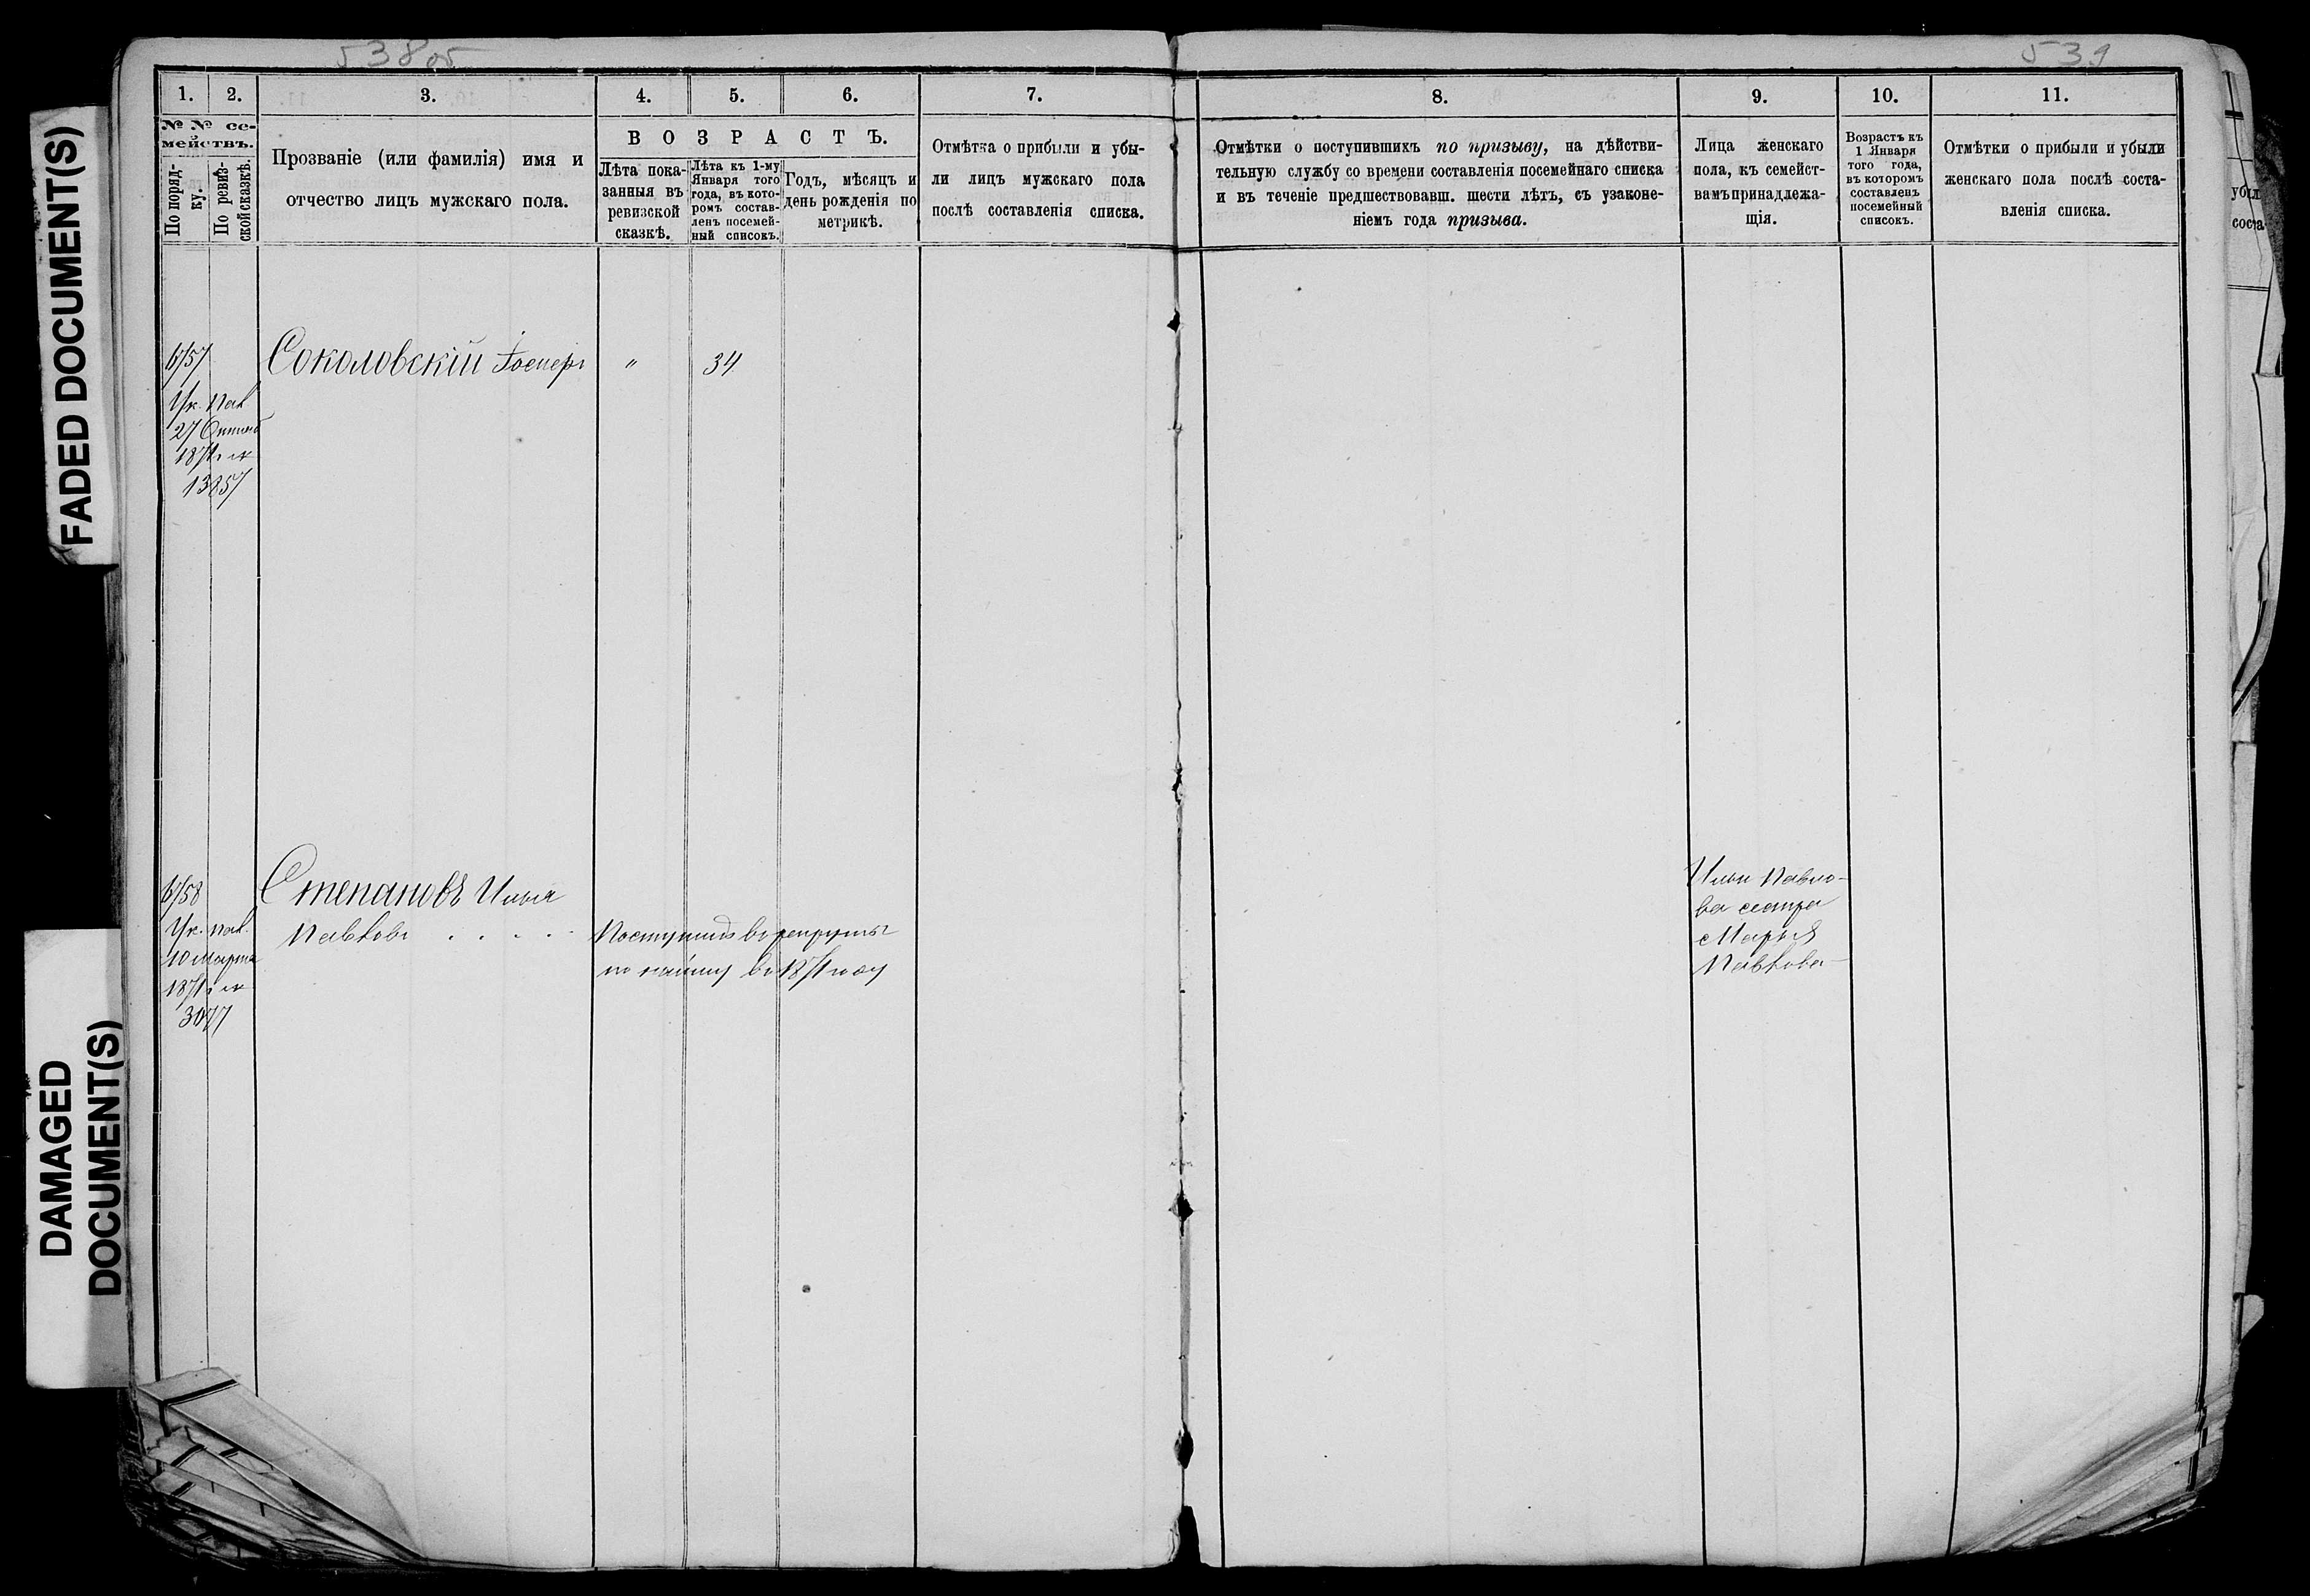 538об
539
FADED DOCUMENT(S)
DAMAGED
DOCUMENT(S)
1.
2.
3.
4.
5.
6.
7.
№ № се-
мействъ.
По поряд-
ку.
По ревиз-
ской сказкѣ.
Прозваніе (или фамилія) имя и
отчество лицъ мужскаго пола.
ВОЗРАСТЪ.
Лѣта пока-
занныя въ
ревизской
сказкѣ.
Лѣта къ 1-му
Января того
года, въ кото-
ромъ состав-
ленъ посемей-
ный списокъ.
Годъ, мѣсяцъ и
день рожденія по
метрикѣ.
Отмѣтка о прибыли и убы-
ли лицъ мужскаго пола
послѣ составленія списка.
8.
9.
10.
11.
Отмѣтки о поступившихъ по призыву, на дѣйстви-
тельную службу со времени составленія посемейнаго списка
и въ теченіе предшествовавш. шести лѣтъ, съ узаконе-
ніемъ года призыва.
Лица женскаго
пола, къ семейст-
вамъ принадлежа-
щія.
Возрастъ къ
1 Января
того года,
въ которомъ
составленъ
посемейный
списокъ.
Отмѣтки о прибыли и убыли
женскаго пола послѣ соста-
вленія списка.
убыл
соста
Соколовскій
"
34
Ук. Пал.
27
1871 г. №
13857
Степановъ Илья
Павловъ . . . .
Ук. Пал.
10 Марта
1871 г. №
3077
Поступилъ въ рекруты
по найму въ 1871 году
Ильи Павло-
ва сестра
Марья
Павлова